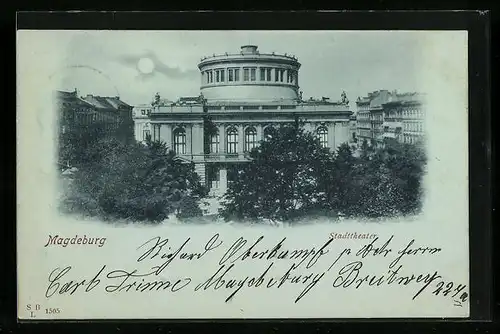 Magdeburg
Stadttheater.
Richard Oberkampf p. Adr Herrn
Carl Magdeburg Breiteweg 227
S B
L 1505